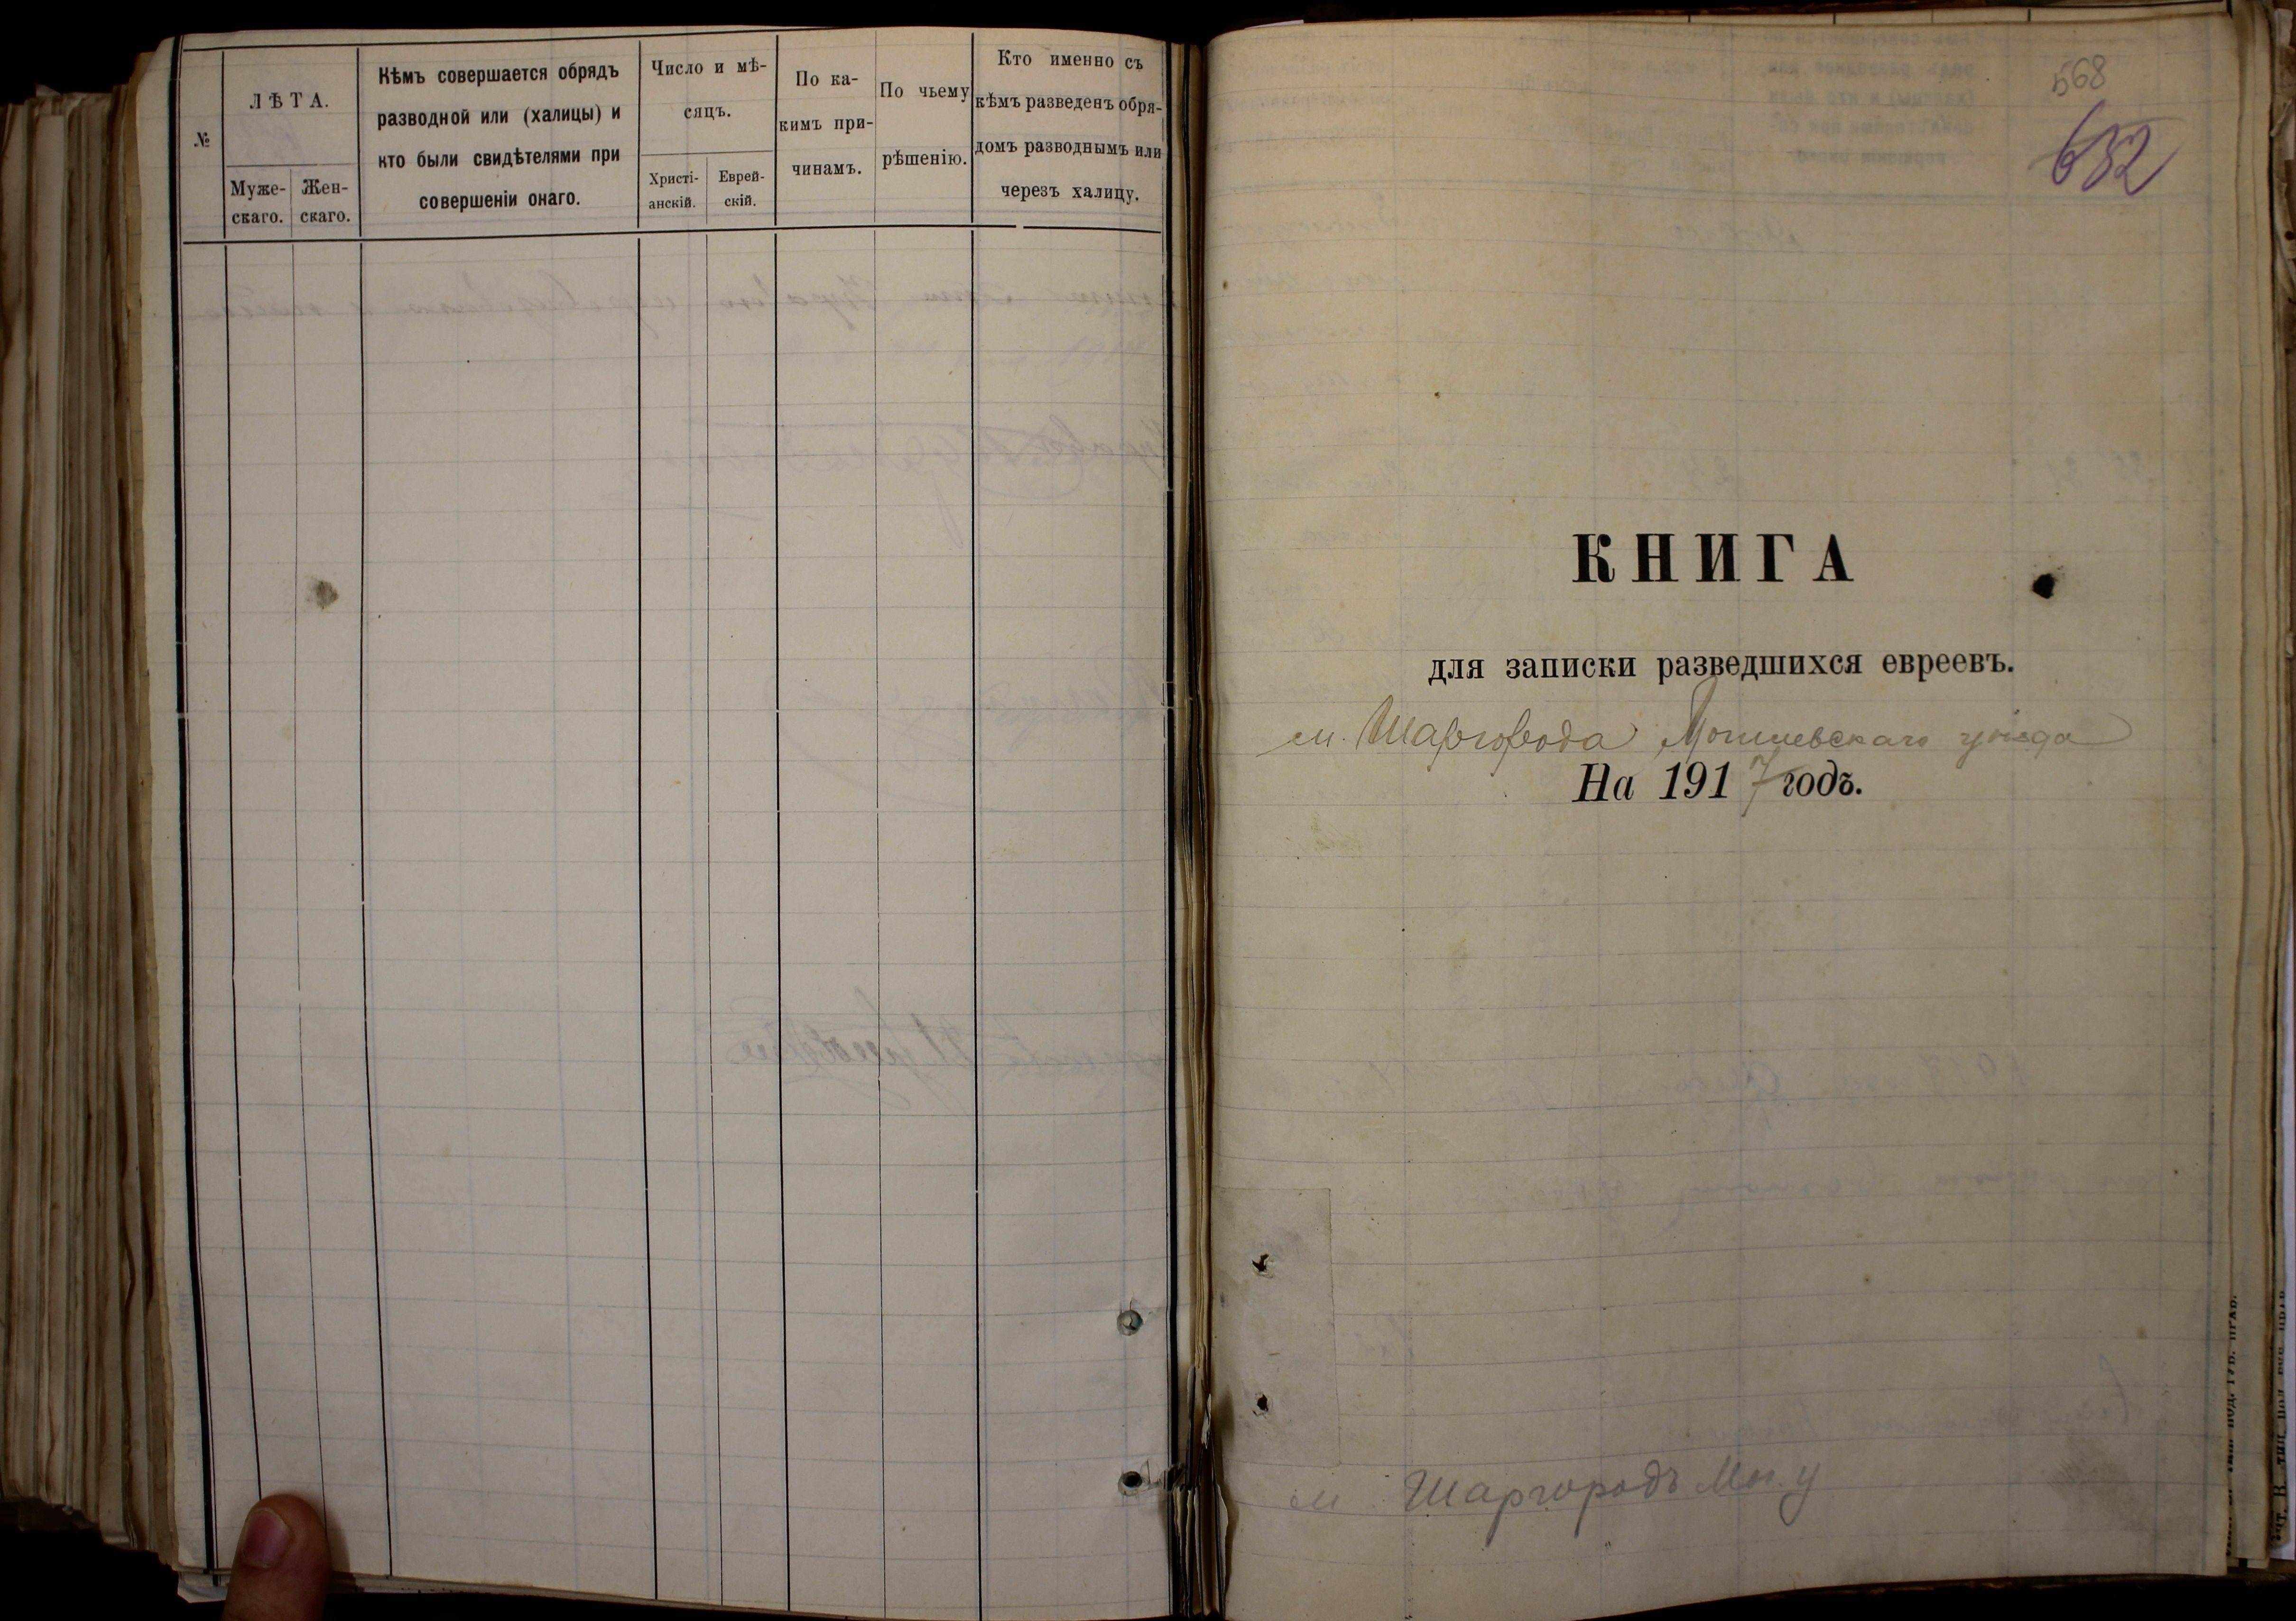 №
ЛѢТА.
Муже-
скаго.
Жен-
скаго.
Кѣмъ совершается обрядъ
разводной или (халицы) и
кто были свидѣтелями при
совершеніи онаго.
Число и мѣ-
сяцъ.
Христі-
анскій.
Еврей-
скій.
По ка-
кимъ при-
чинамъ.
По чьему
рѣшенію.
Кто именно съ
кѣмъ разведенъ обря-
домъ разводнымъ или
черезъ халицу.
568
632
КНИГА
для записки разведшихся евреевъ.
м. Шаргорода Могилевскаго уѣзда
На 1917 годъ.
м. Шаргородъ Мог. у